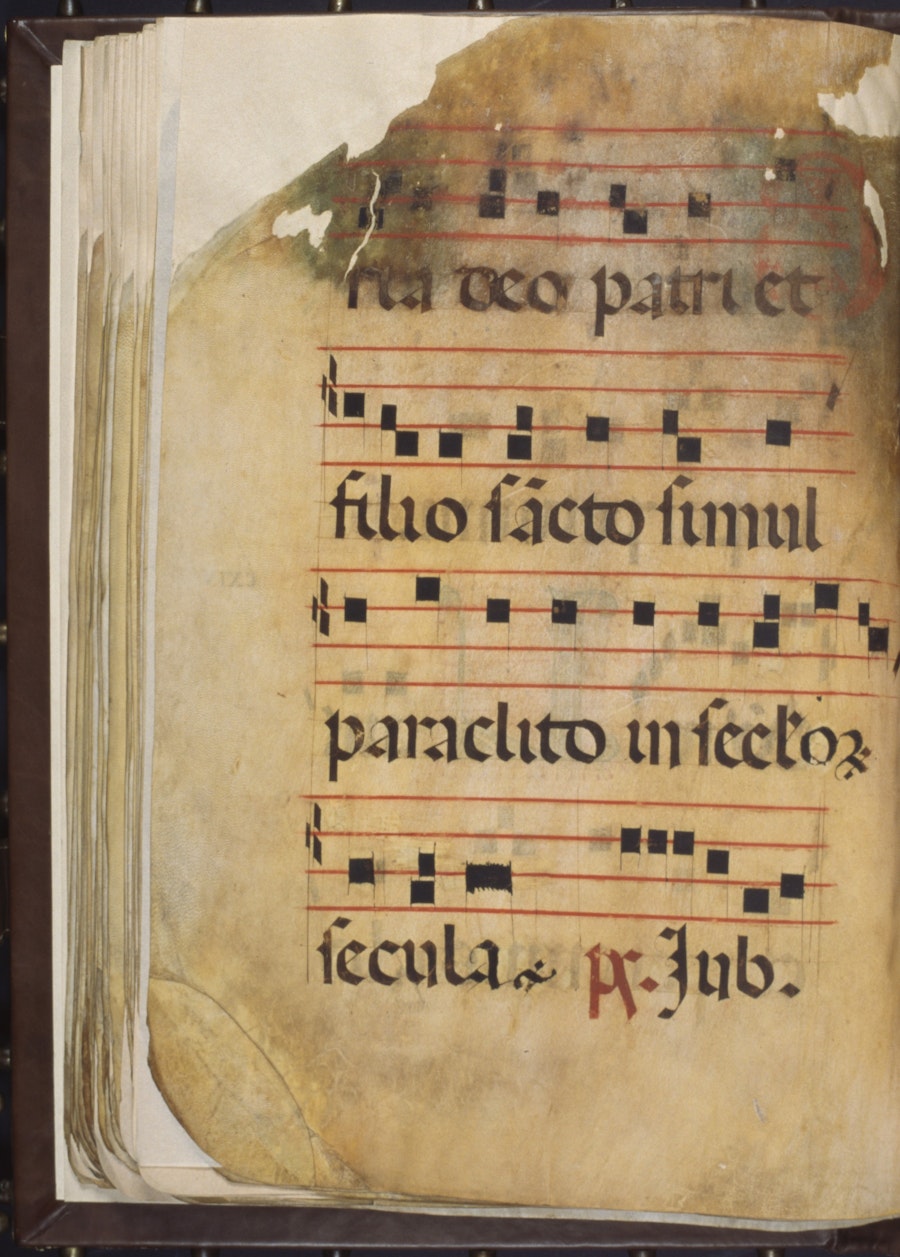 ria deo patri et
filio sācto simul
paraclito in secl'oꝝ
secula. ps. Jub.